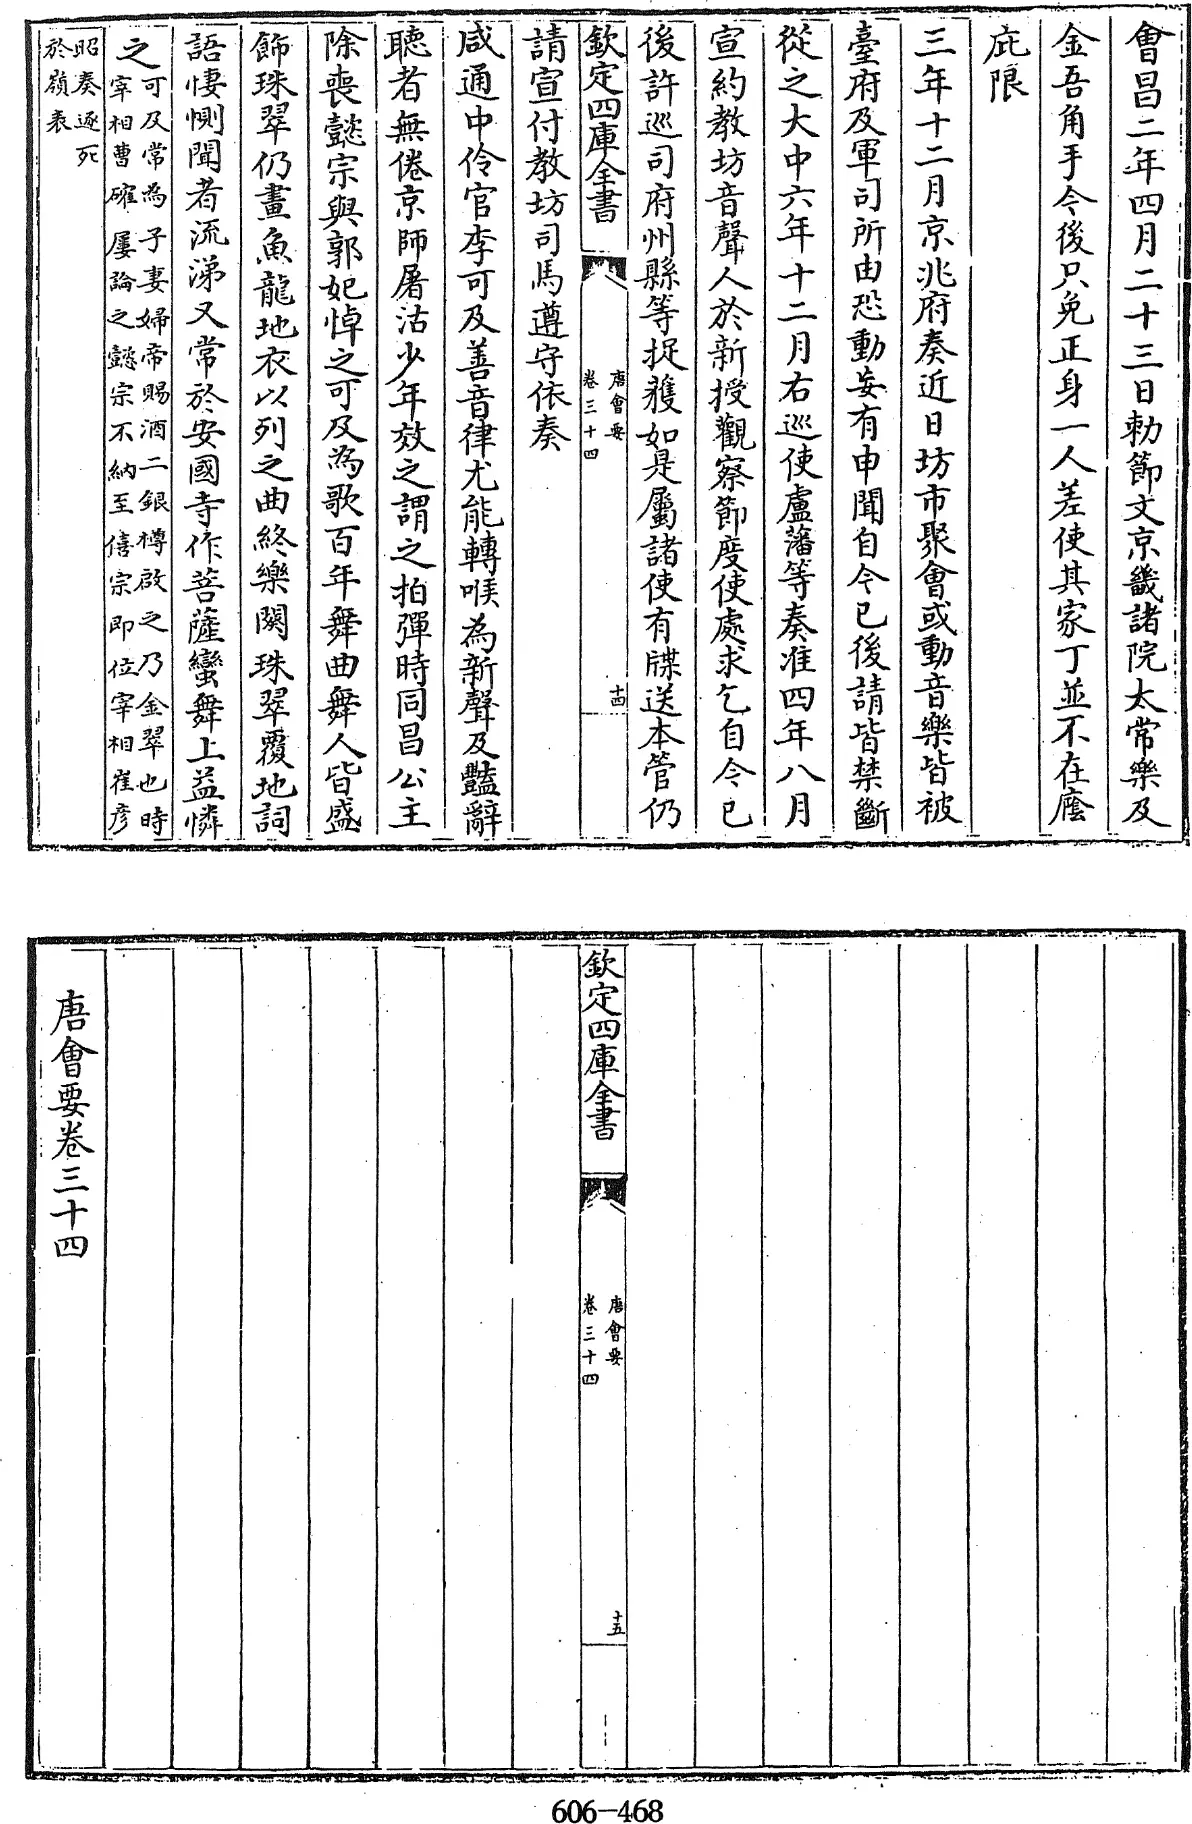 會昌二年四月二十三日勅節文京畿諸院太常樂及
金吾角手今後只免正身一人差使其家丁並不在廕
庇限
三年十二月京兆府奏近日坊市聚會或動音樂皆被
臺府及軍司所由恐動妄有申聞自今已後請皆禁斷
從之大中六年十二月右巡使盧藩等奏准四年八月
宣約教坊音聲人於新授觀察節度使處求乞自今已
後許巡司府州縣等捉獲如是屬諸使有牒送本管仍
欽定四庫全書
唐會要
卷三十四
十四
請宣付教坊司馬遵守依奏
咸通中伶官李可及善音律尤能轉喉為新聲及豔辭
聽者無倦京師屠沽少年效之謂之拍彈時同昌公主
除喪懿宗與郭妃悼之可及為歌百年舞曲舞人皆盛
飾珠翠仍畫魚龍地衣以列之曲終樂闋珠翠覆地詞
語悽惻聞者流涕又常於安國寺作菩薩蠻舞上益憐
之
可及常為子妻婦帝賜酒二銀樽啟之乃金翠也時
宰相曹確屢論之懿宗不納至僖宗即位宰相崔彥
昭奏逐死
於嶺表
欽定四庫全書
唐會要
卷三十四
十五
唐會要卷三十四
606-468